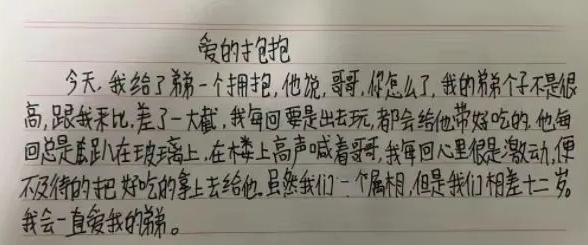 爱的抱抱
今天,我给了弟弟一个拥抱,他说,哥哥,你怎么了,我的弟弟个子不是很
高,跟我来比,差了一大截,我每回要是出去玩,都会给他带好吃的,他每
回总是趴在玻璃上,在楼上高声喊着哥哥,我每回心里很是激动,便
不及待的把好吃的拿上去给他。虽然我们一个属相,但是我们相差十二岁。
我会一直爱我的弟弟。